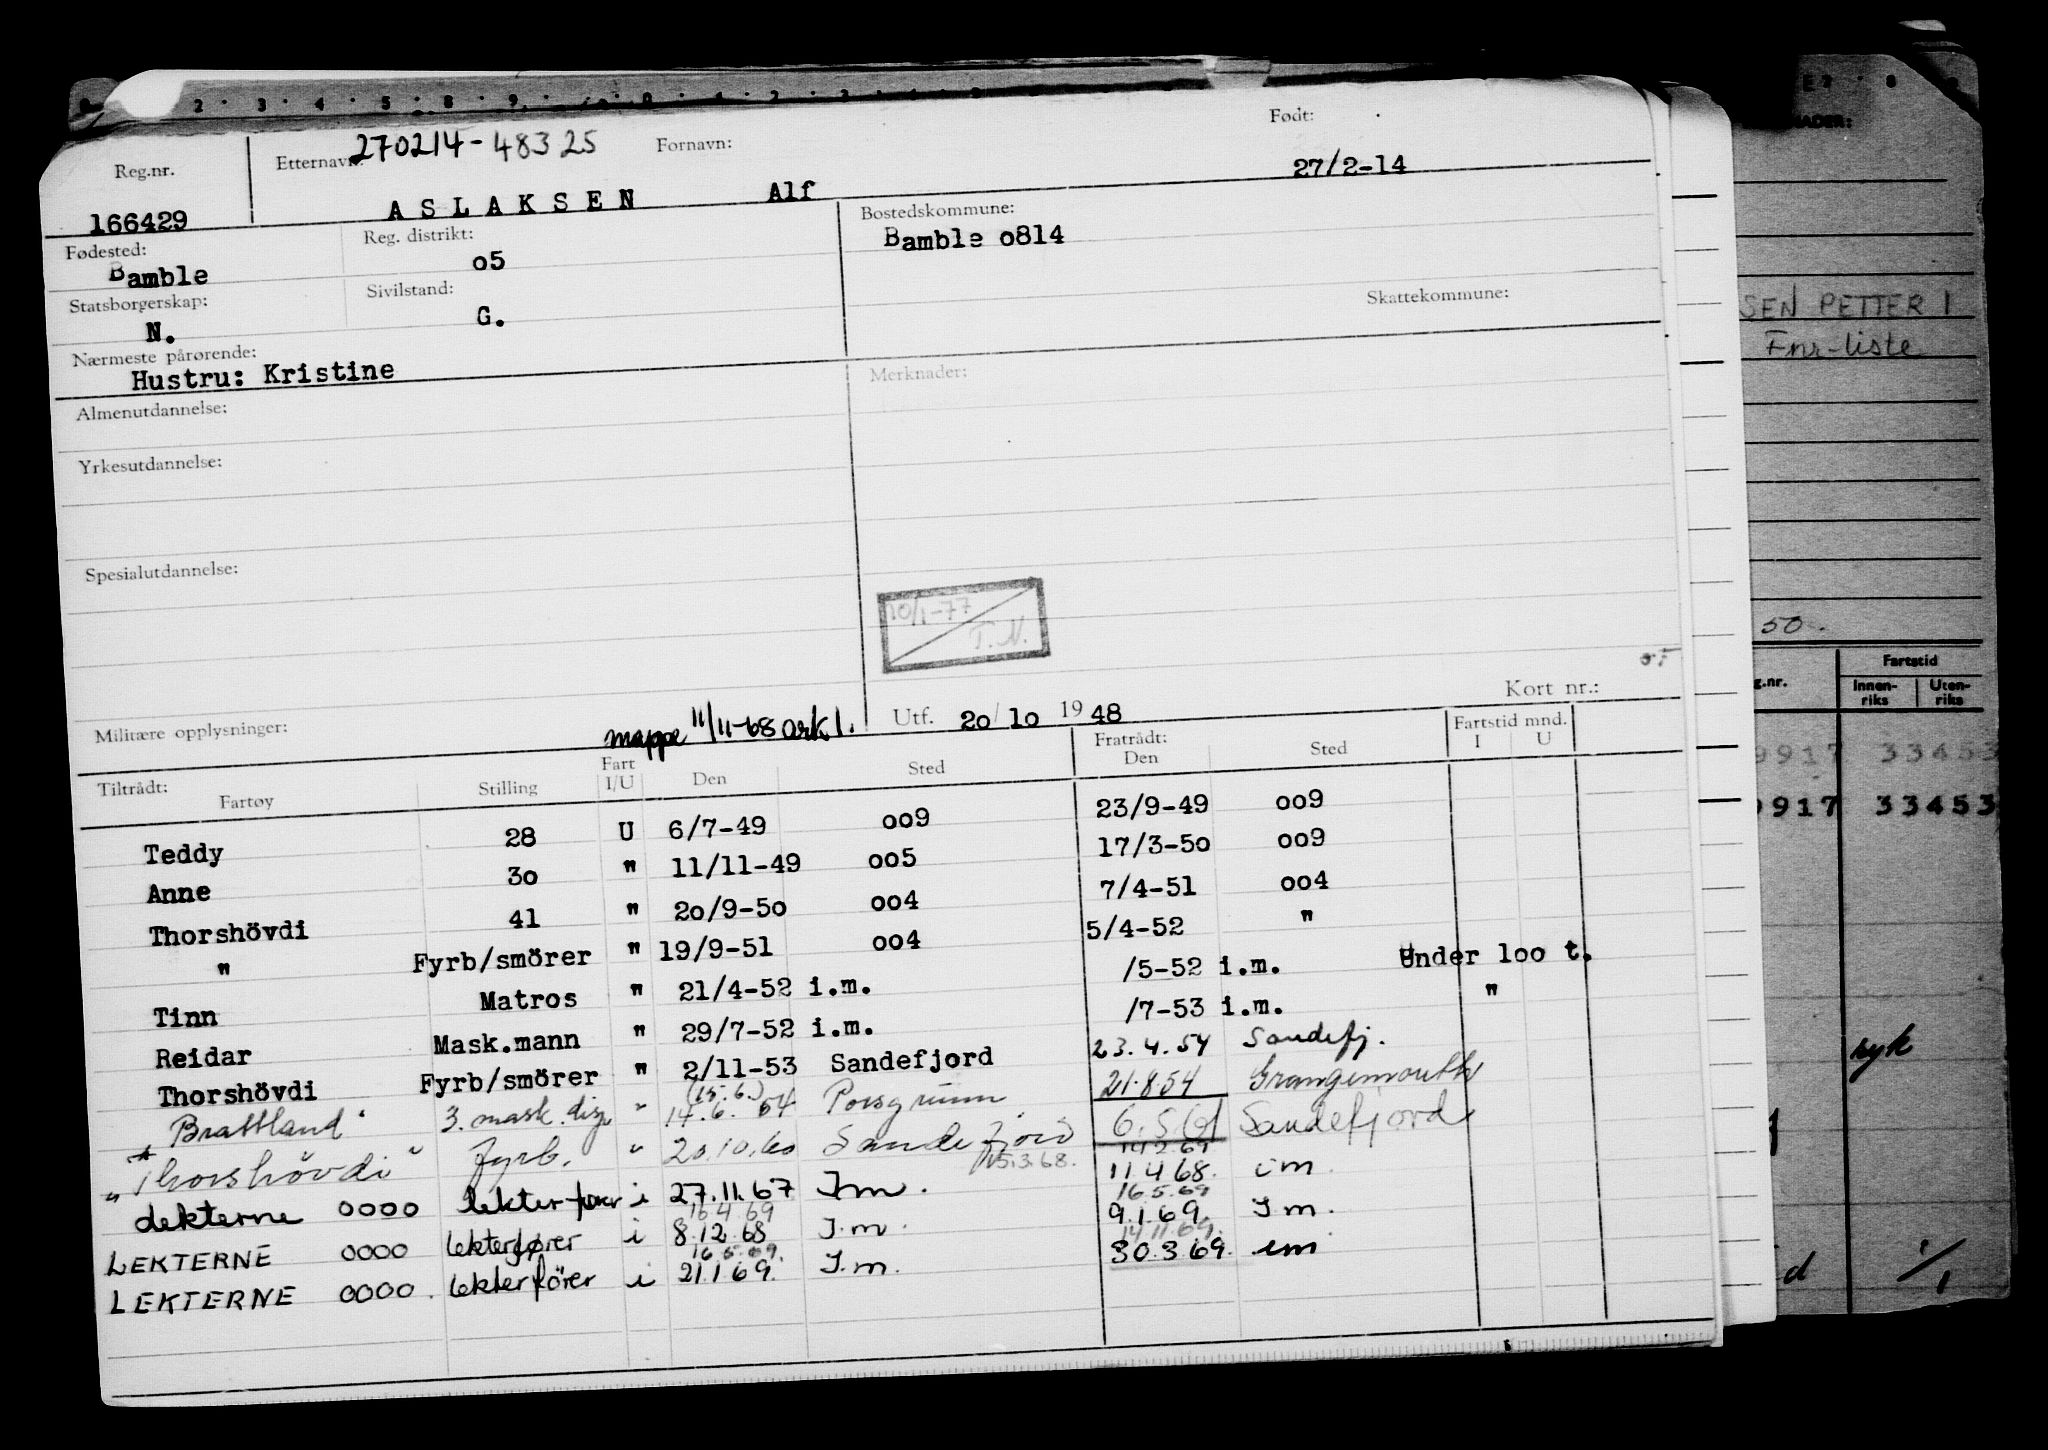 270214-48325
Reg.nr. Etternavn: Fornavn: Født:
166429 ASLAKSEN Alf 27/2-14
Fødested: Reg. distrikt: Bostedskommune:
Bamble o5 Bamble o814
Statsborgerskap: Sivilstand: Skattekommune:
N. G.
Nærmeste pårørende:
Hustru: Kristine
Almenutdannelse: Merknader:
Yrkesutdannelse:
Spesialutdannelse:
10/1-77
T.N.
Militære opplysninger: mappe 11/11-68 ark 1. Utf. 2o/1o 1948 Kort nr.:
Tiltrådt: Fart Fratrådt: Fartstid mnd.
Fartøy Stilling I/U Den Sted Den Sted I U
Teddy 28 U 6/7-49 oo9 23/9-49 oo9
Anne 3o " 11/11-49 oo5 17/3-5o oo9
Thorshövdi 41 " 2o/9-5o oo4 7/4-51 oo4
" Fyrb/smörer " 19/9-51 oo4 5/4-52 "
Tinn Matros " 21/4-52 i.m. /5-52 i.m. Under loo t.
Reidar Mask.mann " 29/7-52 i.m. /7-53 i.m. "
Thorshövdi Fyrb/smörer " 2/11-53 Sandefjord 23.4.54 Sandefj.
(15.6.)
" Brattland " 3. mask. " 14.6.54 Porsgrunn 21.8.54 Grangemouth
" Thorshövdi " fyrb. " 20.10.60 Sandefjord 6.5.61 Sandefjord
15.3.68. 14.2.69
lekterne 0000 lekterfører i 27.11.67 I m. 11.4.68. i m.
16.4.69 16.5.69
LEKTERNE 0000 lekterfører i 8.12.68 I.m. 9.1.69 I m.
16.5.69. 14.11.69.
LEKTERNE 0000. lekterförer i 21.1.69. I.m. 30.3.69. im
SEN PETTER I
Fnr-liste
50.
Fartstid
Innen-riks Uten-riks
9917 33453
9917 33453